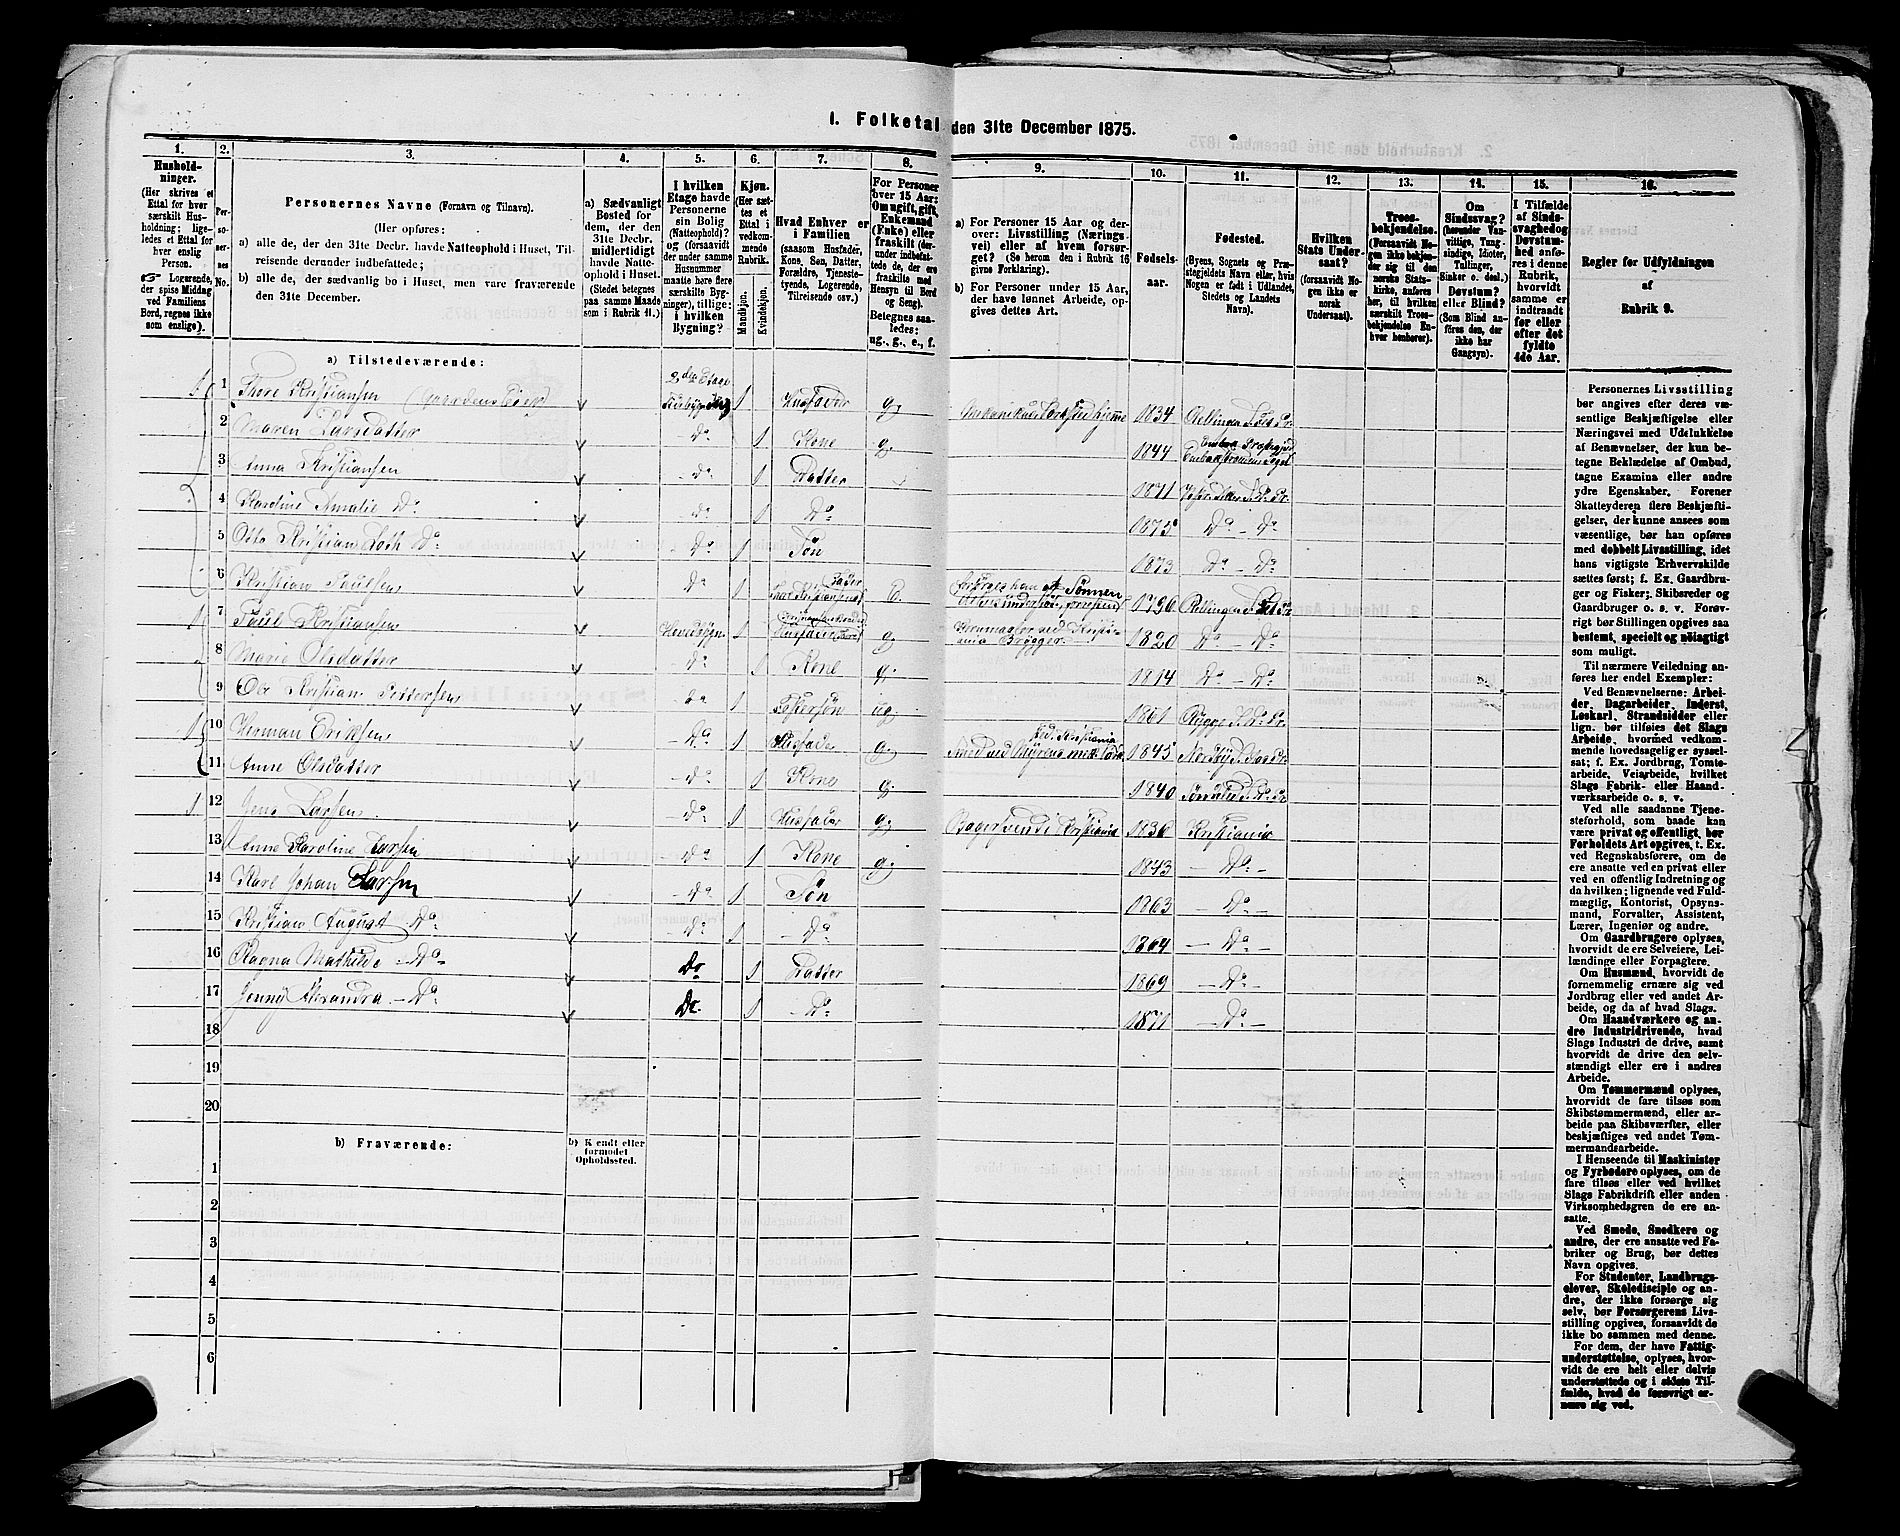 1. Folketal den 31te December 1875.
1.
Husholdninger.
(Her skrives et
Ettal for hver
særskilt Husholdning;
ligeledes et Ettal for
hver enslig
Person.
☞ Logerende,
der spise Middag
ved Familiens
Bord, regnes ikke
som enslige).
2.
Personernes
No.
3.
Personernes Navne (Fornavn og Tilnavn).
(Her opføres:
a) alle de, der den 31te Decbr. havde Natteophold i Huset, Tilreisende
derunder indbefattede;
b) alle de, der sædvanlig bo i Huset, men vare fraværende
den 31te December.
4.
a) Sædvanligt
Bosted for
dem, der den
31te Decbr.
midlertidigt
havde Natteophold
i Huset.
(Stedet betegnes
paa samme Maade
som i Rubrik 11.)
5.
I hvilken
Etage havde
Personerne
sin Bolig
(Natteophold)?
og (forsaavidt
der under samme
Husnummer
maatte høre flere
særskilte Bygninger),
tillige:
i hvilken
Bygning?
6.
Kjøn.
(Her sættes
et
Ettal i
vedkommende
Rubrik.
Mandkjøn.
Kvindekjøn.
7.
Hvad Enhver er
i Familien
(saasom Husfader,
Kone, Søn, Datter,
Forældre, Tjenestetyende,
Logerende,
Tilreisende osv.)
8.
For Personer
over 15 Aar:
Om ugift, gift,
Enkemand
(Enke) eller
fraskilt (derunder
indbefattede
de, der ere
fraskilte med
Hensyn til Bord
og Seng).
Betegnes saaledes:
ug., g., e., f.
9.
a) For Personer 15 Aar og derover:
Livsstilling (Næringsvei)
eller af hvem forsørget?
(Se herom den i Rubrik 16
givne Forklaring).
b) For Personer under 15 Aar,
der have lønnet Arbeide, opgives
dettes Art.
10.
Fødselsaar.
11.
Fødested.
(Byens, Sognets og Præstegjeldets
Navn eller, hvis
Nogen er født i Udlandet,
Stedets og Landets
Navn).
12.
Hvilken
Stats Undersaat?
(forsaavidt Nogen
ikke er
norsk
Undersaat).
13.
Troesbekjendelse.
(Forsaavidt Nogen
ikke bekjender
sig til den
norske Statskirke,
anføres
her, til hvilken
særskilt Troesbekjendelse
Enhver
henhører).
14.
Om
Sindssvag?
(herunder Vanvittige,
Tungsindige,
Idioter,
Tullinger,
Sinker o. desl.)
Døvstum?
eller Blind?
(Som Blind anføres
den, der
ikke har
Gangsyn).
15.
I Tilfælde
af Sindssvaghed
og
Døvstumhed
anføres
i denne
Rubrik,
hvorvidt
samme er
indtraadt
før eller
efter det
fyldte
4de Aar.
16.
Regler for Udfyldningen
af
Rubrik 9.
a) Tilstedeværende:
1 1 Thore Kristiansen (Gaardens Eier) 2den Etage 1 Husfader g. 1834
2 Maren Larsdatter Do 1 Kone g. 1844
3 Anna Kristiansen Do 1 Datter 1871
4 Karoline Amalie Do Do 1 Do 1875 Do - Do
5 Otto Kristian Do Do 1 Søn 1873 Do - Do
6 Kristian Paulsen Do 1 Fader E. 1790
1 7 Paul Kristiansen Hovedbygn 1 g. 1820 Do - Do
8 Marie Olsdatter Do 1 Kone g. 1814 Do - Do
9 Ole Kristian Pettersen Do 1 ug. 1861 Rygge
1 10 Herman Eriksen Do 1 Husfader g. 1845
11 Anne Olsdatter Do 1 Kone g. 1840
1 12 Jens Larsen Do 1 Husfader g. Bagersvend i Kristiania 1836 Kristiania
13 Anne Karoline Larsen Do 1 Kone g. 1843 Do
14 Karl Johan Larsen Do 1 Søn 1863 Do
15 Kristian August Do Do 1 Do 1864 Do
16 Ragna Mathilde Do Do 1 Datter 1869 Do
17 Jenny Alexandra Do Do 1 Do 1871 Do
18
19
20
b) Fraværende:
b) Kjendt eller
formodet
Opholdssted.
1
2
3
4
5
6
Personernes Livsstilling
bør angives efter deres væsentlige
Beskjæftigelse eller
Næringsvei med Udelukkelse
af Benævnelser, der kun betegne
Beklædelse af Ombud,
tagne Examina eller andre
ydre Egenskaber. Forener
Skatteyderen flere Beskjæftigelser,
der kunne ansees som
væsentlige, bør han opføres
med dobbelt Livsstilling, idet
hans vigtigste Erhvervskilde
sættes først; f. Ex. Gaardbruger
og Fisker; Skibsreder og
Gaardbruger o. s. v. Forøvrigt
bør Stillingen opgives saa
bestemt, specielt og nöiagtigt
som muligt.
Til nærmere Veiledning anføres
her endel Exempler:
Ved Benævnelserne: Arbeider,
Dagarbeider, Inderst,
Løskarl, Strandsidder eller
lign. bør tilføies det Slags
Arbeide, hvormed vedkommende
hovedsagelig er sysselsat;
f. Ex. Jordbrug, Tomtearbeide,
Veiarbeide, hvilket
Slags Fabrik- eller Haandværksarbeide
o. s. v.
Ved alle saadanne Tjenesteforhold,
som baade kan
være privat og offentligt, bør
Forholdets Art opgives, t. Ex.
ved Regnskabsførere, om de
ere ansatte ved en privat eller
ved en offentlig Indretning og
da hvilken; lignende ved Fuldmægtig,
Kontorist, Opsynsmand,
Forvalter, Assistent,
Lærer, Ingeniør og andre.
Om Gaardbrugere oplyses,
hvorvidt de ere Selveiere, Leilændinge
eller Forpagtere.
Om Husmænd, hvorvidt de
fornemmelig ernære sig ved
Jordbrug eller ved andet Arbeide,
og da af hvad Slags.
Om Haandværkere og andre
Industridrivende, hvad
Slags Industri de drive, samt
hvorvidt de drive den selvstændigt
eller ere i andres
Arbeide.
Om Tømmermænd oplyses,
hvorvidt de fare tilsøs som
Skibstømmermænd, eller arbeide
paa Skibsværfter, eller
beskjæftiges ved andet Tømmermandsarbeide.
I Henseende til Maskinister
og Fyrbødere oplyses, om de
fare tilsøs eller ved hvilket
Slags Fabrikdrift eller anden
Virksomhedsgren de ere ansatte.
Ved Smede, Snedkere og
andre, der ere ansatte ved Fabriker
og Brug, bør dettes
Navn opgives.
For Studenter, Landbrugselever,
Skoledisciple og andre,
der ikke forsørge sig
selv, bør Forsørgerens Livsstilling
opgives, forsaavidt de
ikke bo sammen med denne.
For dem, der have Fattigunderstøttelse,
oplyses, hvorvidt
de ere helt eller delvis
understøttede og i sidste Tilfælde,
hvad de forøvrigt ernære
sig ved.